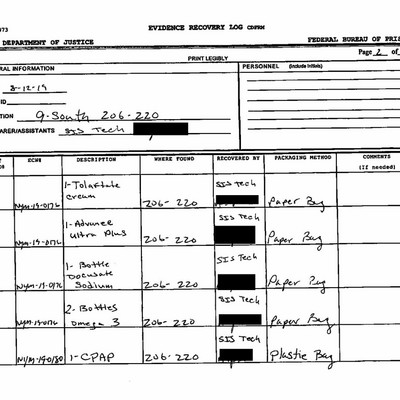 973 EVIDENCE RECOVERY LOG CDFRM
DEPARTMENT OF JUSTICE FEDERAL BUREAU OF PRIS
Page 2 of
PRINT LEGIBLY
RAL INFORMATION PERSONNEL (Include Initials)
8-12-19
ID
TION 9-South 206-220
ARER/ASSISTANTS SIS Tech
ECN# DESCRIPTION WHERE FOUND RECOVERED BY PACKAGING METHOD COMMENTS
(If needed)
1-Tolnaftate
Cream
NYM-19-0176 206-220 SIS Tech Paper Bag
1-Advance
Ultra Plus
NYM-19-0176 206-220 SIS Tech Paper Bag
1-Bottle
Docusate
Sodium
NYM-19-0176 206-220 SIS Tech Paper Bag
2-Bottles
Omega 3
NYM-19-0176 206-220 SIS Tech Paper Bag
NYM-19-0180 1-CPAP 206-220 SIS Tech Plastic Bag